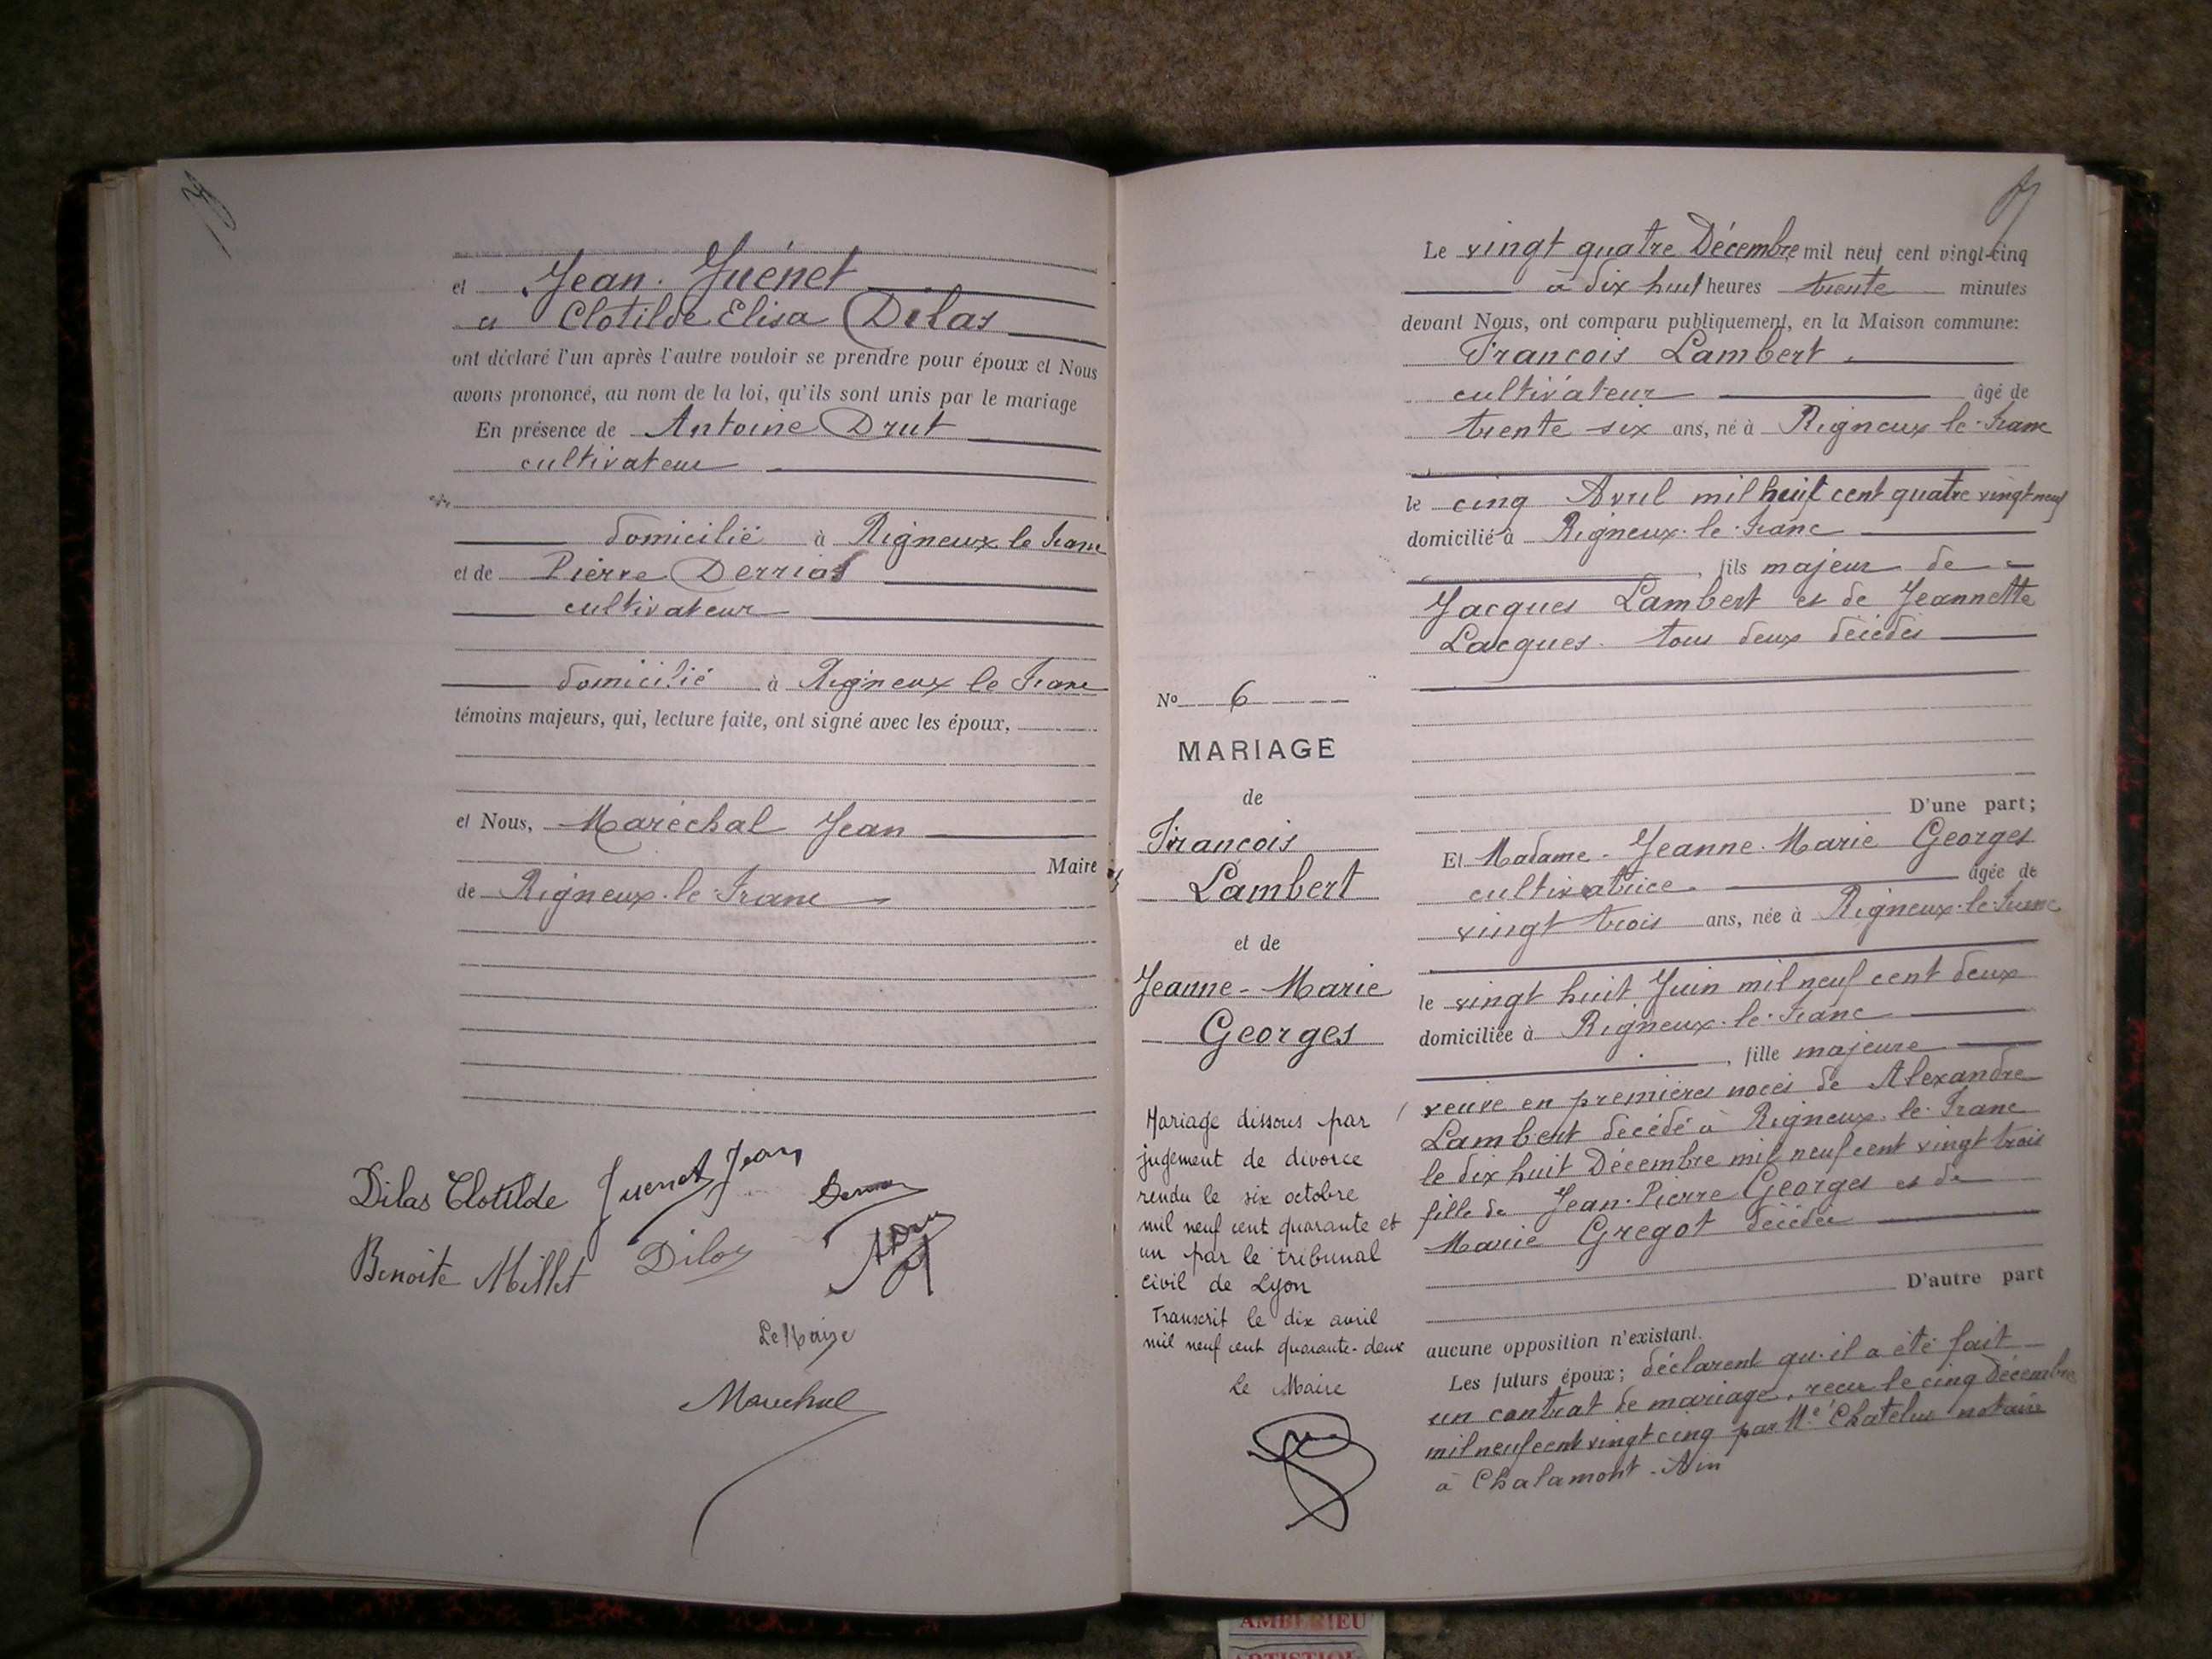 et Jean Guénet
et Clotilde Elisa Dilas
ont déclaré l'un après l'autre vouloir se prendre pour époux et Nous
avons prononcé, au nom de la loi, qu'ils sont unis par le mariage
En présence de Antoine Drut
cultivateur
domicilié à Rigneux le Franc
et de Pierre Derrias
cultivateur
domicilié à Rigneux le Franc
témoins majeurs, qui, lecture faite, ont signé avec les époux,
et Nous, Maréchal Jean
Maire
de Rigneux-le-Franc
Dilas Clotilde Guenet Jean
Benoite Millet Dilas
Le Maire
Marechal
Le vingt quatre Décembre mil neuf cent vingt-cinq
à dix huit heures trente minutes
devant Nous, ont comparu publiquement, en la Maison commune:
Francois Lambert
cultivateur âgé de
trente six ans, né à Rigneux le Franc
le cinq Avril mil huit cent quatre vingt neuf
domicilié à Rigneux-le-Franc
, fils majeur de
Jacques Lambert et de Jeannette
Lacques tous deux décédés
D'une part;
Et Madame Jeanne Marie Georges
cultivatrice âgée de
vingt trois ans, née à Rigneux-le-Franc
le vingt huit Juin mil neuf cent deux
domiciliée à Rigneux-le-Franc
, fille majeure
veuve en premières noces de Alexandre
Lambert décédé à Rigneux-le-Franc
le dix huit Décembre mil neuf cent vingt trois
fille de Jean-Pierre Georges et de
Marie Gregot décédée
D'autre part
aucune opposition n'existant.
Les futurs époux; déclarent qu'il a été fait
un contrat de mariage, recu le cinq Décembre
mil neuf cent vingt cinq par Me Chatelus notaire
à Chalamont-Ain
No 6
MARIAGE
de
Francois
Lambert
et de
Jeanne-Marie
Georges
Mariage dissous par
jugement de divorce
rendu le six octobre
mil neuf cent quarante et
un par le tribunal
civil de Lyon
Transcrit le dix avril
mil neuf cent quarante-deux
Le Maire
AMBERIEU